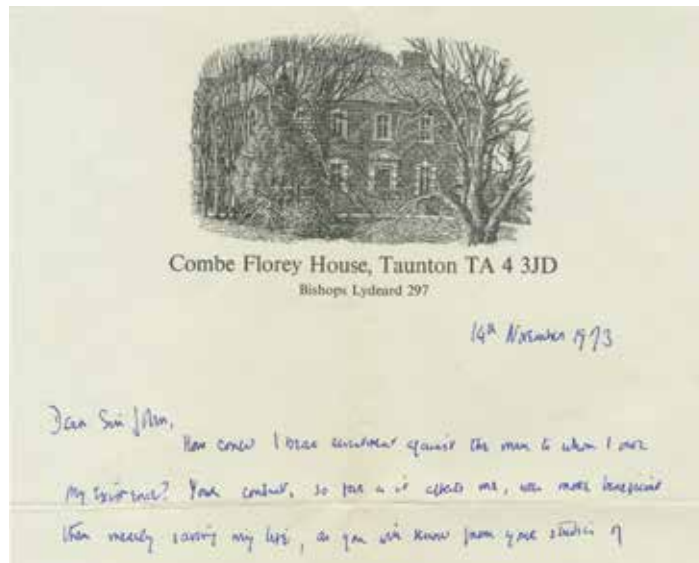 Combe Florey House, Taunton TA 4 3JD
Bishops Lydeard 297
14th November 1973
Dear Sir John,
How could I bear resentment against the man to whom I owe
my existence? Your conduct, so far as it affects me, was more beneficial
than merely saving my life, as you will know from your studies of